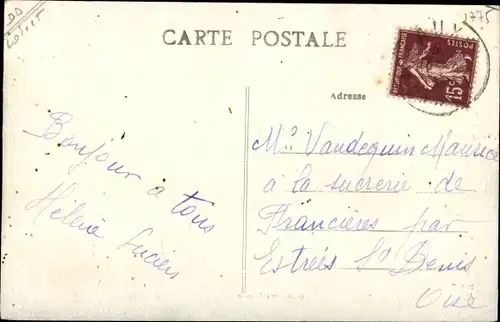 1775
CARTE POSTALE
REPUBLIQUE FRANÇAISE
POSTES
15c
Adresse
Bonjour à tous
Hélène Lucien
Mr Vandequin Maurice
à la sucrerie de
Francières par
Estrées St Denis
Oise